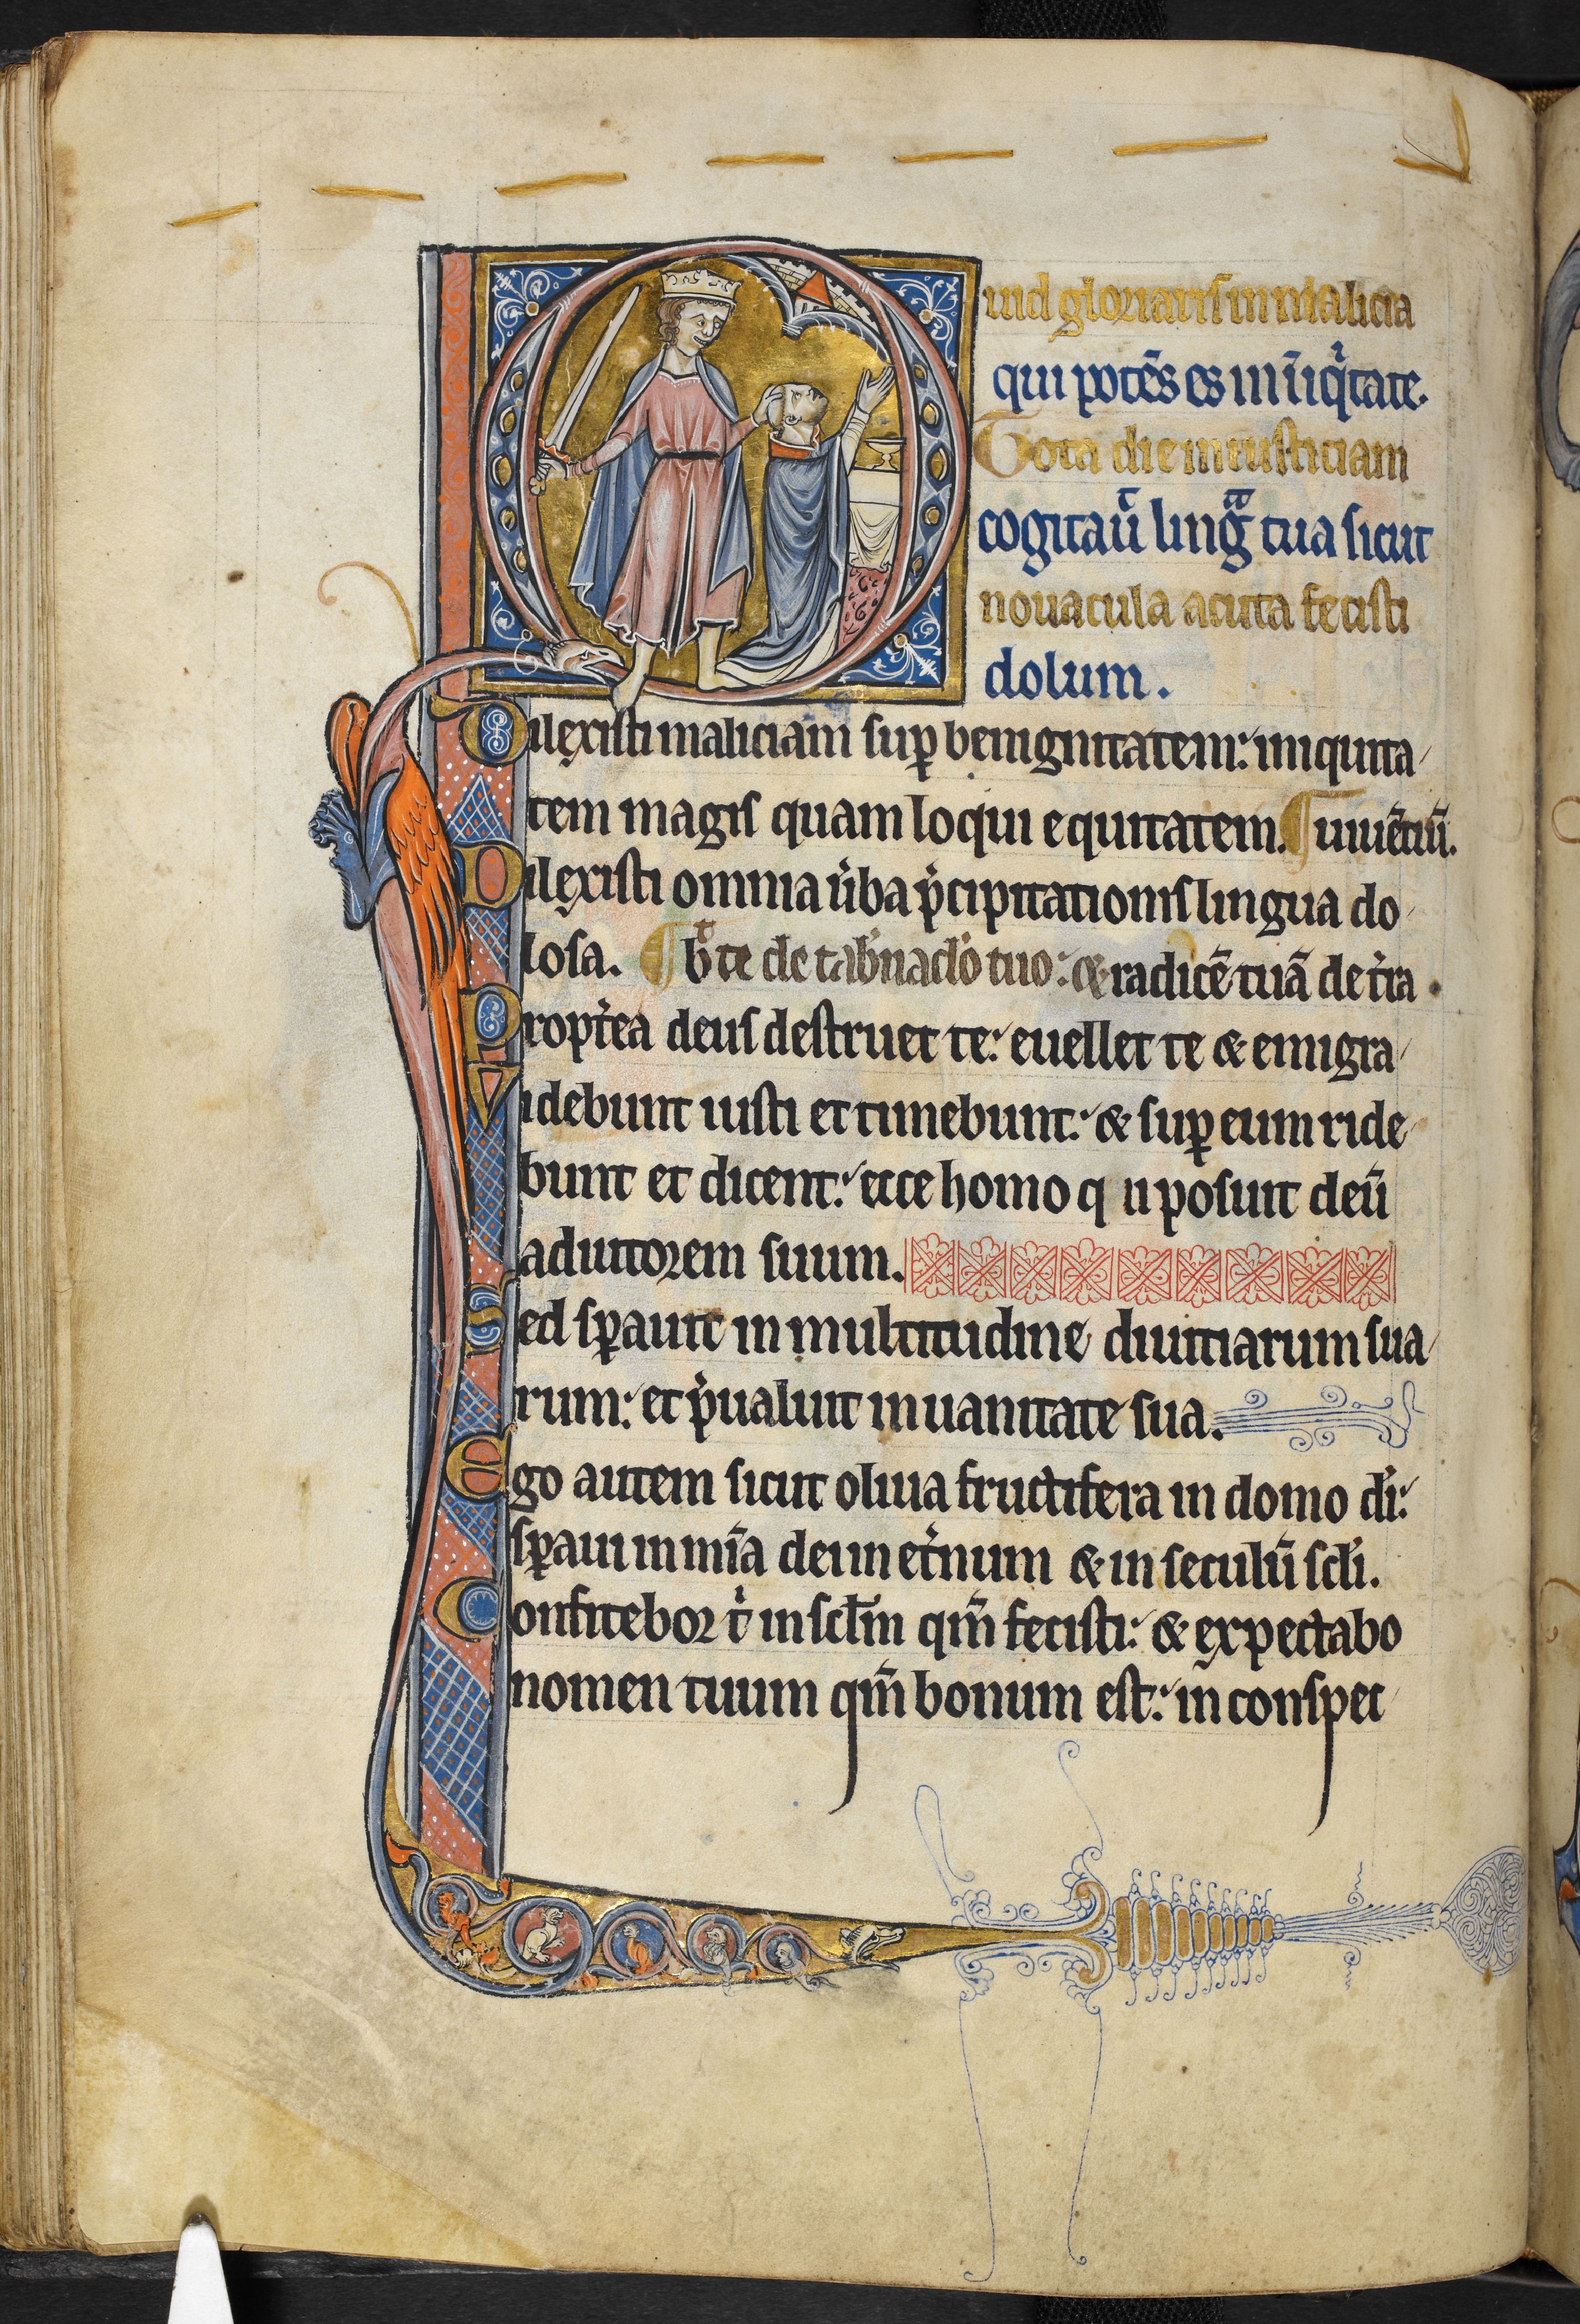 Quid gloriaris in malicia
qui potēs es in īiqͥtate.
Tota die iniusticiam
cogitaū lingᷓ tua sicut
nouacula acuta fecisti
dolum.
Dilexisti maliciam suꝑ benignitatem: iniquita
tem magis quam loqui equitatem. ¶ uiuētiū.
Dilexisti omnia u̾ba p̾cipitationis lingua do
losa. ¶ bͭ te de tab̾nac̾lo tuo: & radicē tuā de t̾ra.
Propt̾ea deus destruet te: euellet te & emigra
Videbunt iusti et timebunt: & suꝑ eum ride
bunt et dicent: ecce homo q ̄n posuit deū
adiutorem suum.
Sed sꝑauit in multitudine diuitiarum sua
rum: et p̾ualuit in uanitate sua.
Ego autem sicut oliua fructifera in domo dī:
sꝑaui in mīa dei in et̾num & in seculū scl̄i.
Confitebor tͥ in scl̄m qm̄ fecisti: & expectabo
nomen tuum qm̄ bonum est: in conspec